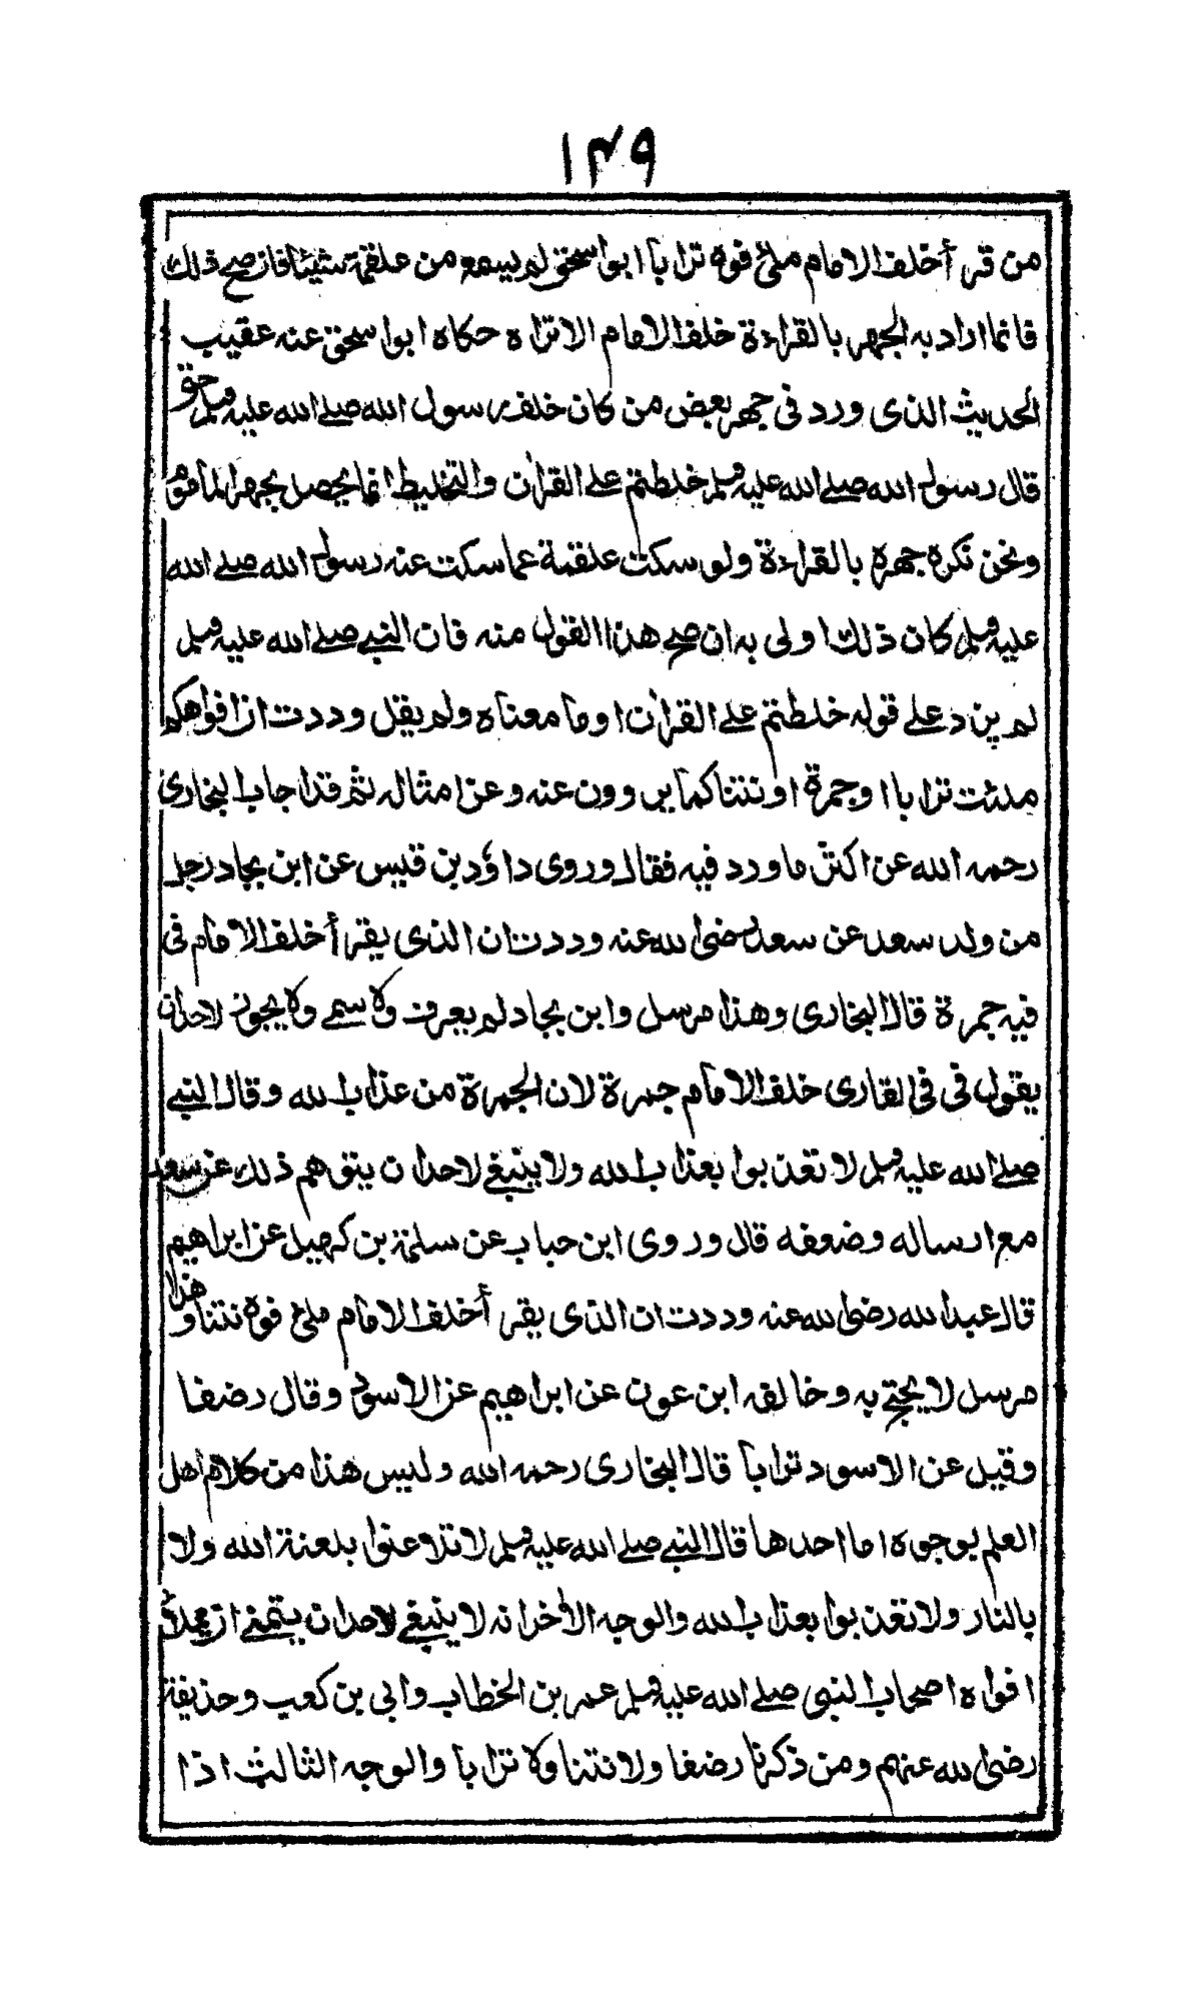 ١٤٩
من قرأ خلف الامام ملئ فوه ترابا ابو اسحق لم يسمع من علقمة شيئا فان صح ذلك
فانما اراد به الجهر بالقراءة خلف الامام الا تراه حكاه ابو اسحق عنه عقيب
الحديث الذى ورد فى جهر بعض من كان خلف رسول الله صلے الله عليه وسلم حتى
قال رسول الله صلے الله عليه وسلم خلطتم علے القران والتخليط انما يحصل بجهر المأموم
ونحن نكره جهره بالقراءة ولو سكت علقمة عما سكت عنه رسول الله صلے الله
عليه وسلم كان ذلك اولى به ان صح هذا القول منه فان النبے صلے الله عليه وسلم
لم يزد علے قوله خلطتم علے القران او ما معناه ولم يقل وددت ان افواهكم
ملئت ترابا او جمرة او نتنا كما يروون عنه وعن امثاله ثم قد اجاب البخارى
رحمه الله عن اكثر ما ورد فيه فقال وروى داؤد بن قيس عن ابن بجاد رجل
من ولد سعد عن سعد رضى الله عنه وددت ان الذى يقرأ خلف الامام فى
فيه جمرة قال البخارى وهذا مرسل وابن بجاد لم يعرف ولا سمے ولا يجوز لاحد ان
يقول فى فى القارى خلف الامام جمرة لان الجمرة من عذاب الله وقال النبے
صلے الله عليه وسلم لا تعذبوا بعذاب الله ولا ينبغے لاحد ان يتوهم ذلك عن سعد
مع ارساله وضعفه قال وروى ابن حباب عن سلمة بن كهيل عن ابراهيم
قال عبد الله رضى الله عنه وددت ان الذى يقرأ خلف الامام ملئ فوه نتنا وهذا
مرسل لا يحتج به وخالفه ابن عون عن ابراهيم عن الاسود وقال رضفا
وقيل عن الاسود ترابا قال البخارى رحمه الله وليس هذا من كلام اهل
العلم بوجوه اما احدها قال النبے صلے الله عليه وسلم لا تلاعنوا بلعنة الله ولا
بالنار ولا تعذبوا بعذاب الله والوجه الأخر انه لا ينبغے لاحد ان يتمنے ان يملأ
افواه اصحاب النبى صلے الله عليه وسلم عمر بن الخطاب وابى بن كعب وحذيفة
رضى الله عنهم ومن ذكرنا رضفا ولا نتنا ولا ترابا والوجه الثالث اذا